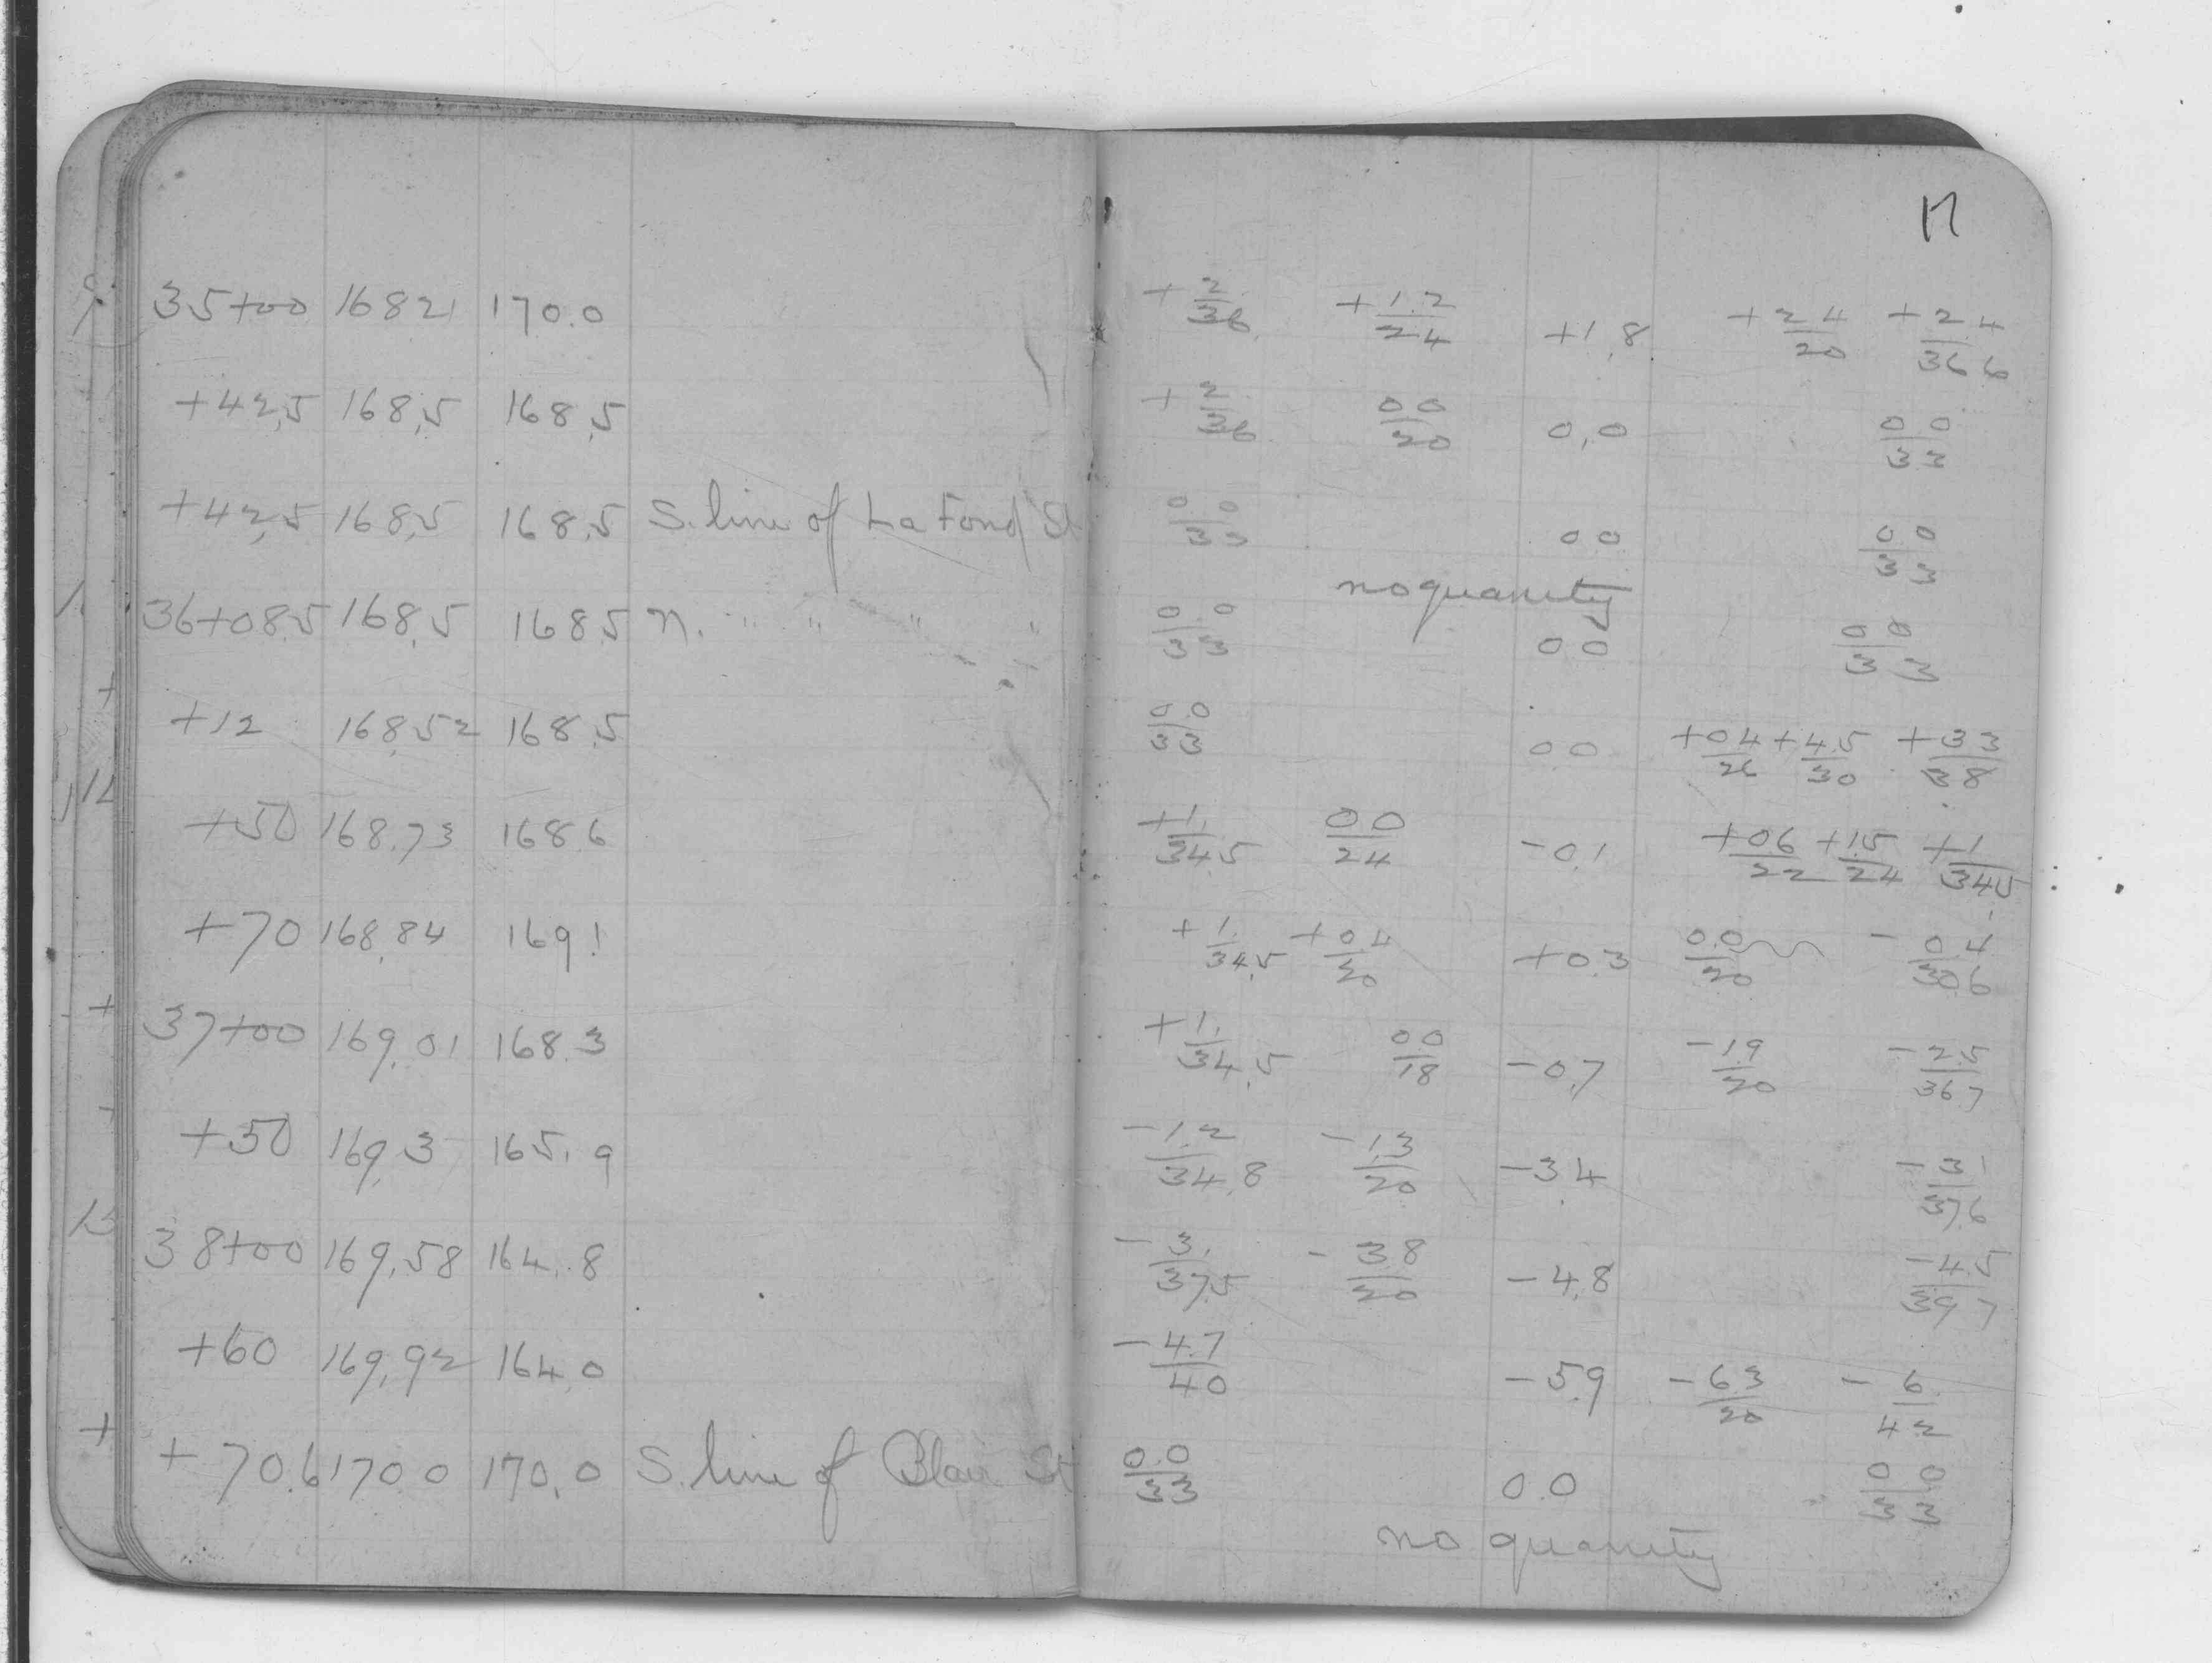 17
35+00 168.21 170.0 +2./36 +1.2/24 +1.8 +2.4/20 +2.4/36.6
+42.5 168.5 168.5 +2./36 0.0/20 0.0 0.0/33
+42.5 168.5 168.5 S. line of La Fond St 0.0/33 0.0 0.0/33
no quanity
36+08.5 168.5 168.5 N. " " " " 0.0/33 0.0 0.0/33
+12 168.52 168.5 0.0/33 0.0 +0.4/26 +4.5/30 +3.3/38
+50 168.73 168.6 +1./34.5 0.0/24 -0.1 +0.6/22 +1.5/24 +1/34.5
+70 168.84 169.1 +1./34.5 +0.4/20 +0.3 0.0/20 -0.4/30.6
37+00 169.01 168.3 +1./34.5 0.0/18 -0.7 -1.9/20 -2.5/36.7
+50 169.3 165.9 -1.2/34.8 -1.3/20 -3.4 -3.1/37.6
38+00 169.58 164.8 -3./37.5 -3.8/20 -4.8 -4.5/39.7
+60 169.92 164.0 -4.7/40 -5.9 -6.3/20 -6./42
+70.6 170.0 170.0 S. line of Blair St 0.0/33 0.0 0.0/33
no quanity